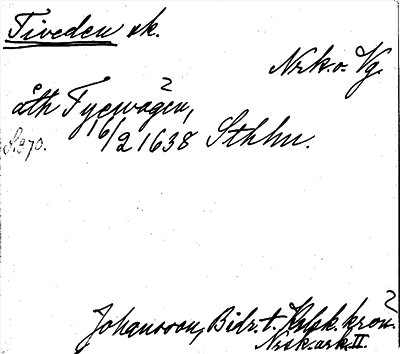 Tiveden sk.
Nrk o. Vg.
åth Tyewägen,
6/2 1638 Sthhu.
S. 370.
Johansson, Bidr. t. Hlsk. kron.
Nrsk. ark. II.